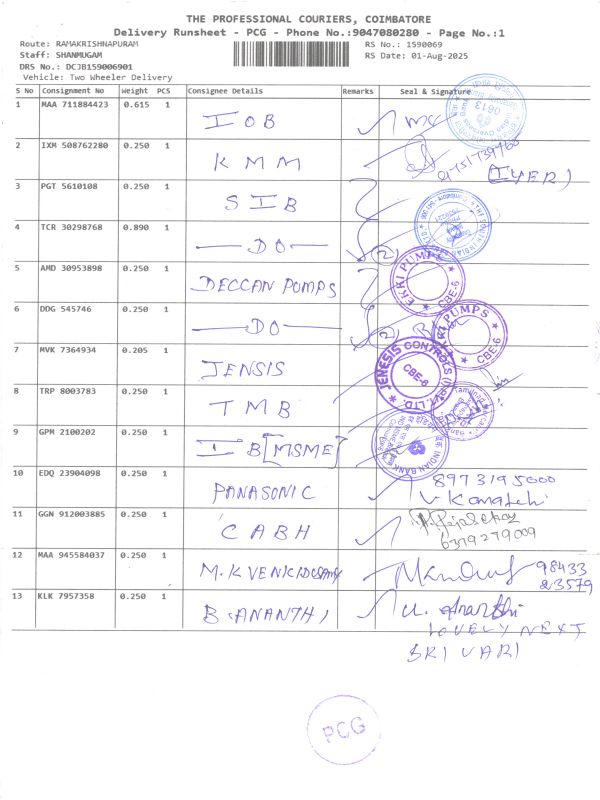 THE PROFESSIONAL COURIERS, COIMBATORE
Delivery Runsheet - PCG - Phone No.:9047080280 - Page No.:1
Route: RAMAKRISHNAPURAM RS No.: 1590069
Staff: SHANMUGAM RS Date: 01-Aug-2025
DRS No.: DCJB159006901
Vehicle: Two Wheeler Delivery
S No Consignment No Weight PCS Consignee Details Remarks Seal & Signature
1 MAA 711884423 0.615 1 IOB
0613
2 IXM 508762280 0.250 1 KMM
(IYER)
3 PGT 5610108 0.250 1 SIB
4 TCR 30298768 0.890 1 DO (2)
5 AMD 30953898 0.250 1 DECCAN PUMPS
EKKI PUMPS CBE-6
6 DDG 545746 0.250 1 DO (2)
PUMPS CBE-6
7 MVK 7364934 0.205 1 JENSIS
JENESIS CONTROLS (I) PVT. LTD. CBE-6
8 TRP 8003783 0.250 1 TMB
9 GPM 2100202 0.250 1 IB [MSME]
INDIAN BANK
10 EDQ 23904098 0.250 1 PANASONIC 8973195000
V Kamatchi
11 GGN 912003885 0.250 1 CABH
6379279009
12 MAA 945584037 0.250 1 M.K VENKIDUSAMY 98433
23579
13 KLK 7957358 0.250 1 B.ANANTHI U. Ananthi
LOVELY NEXT
SRI VARI
PCG